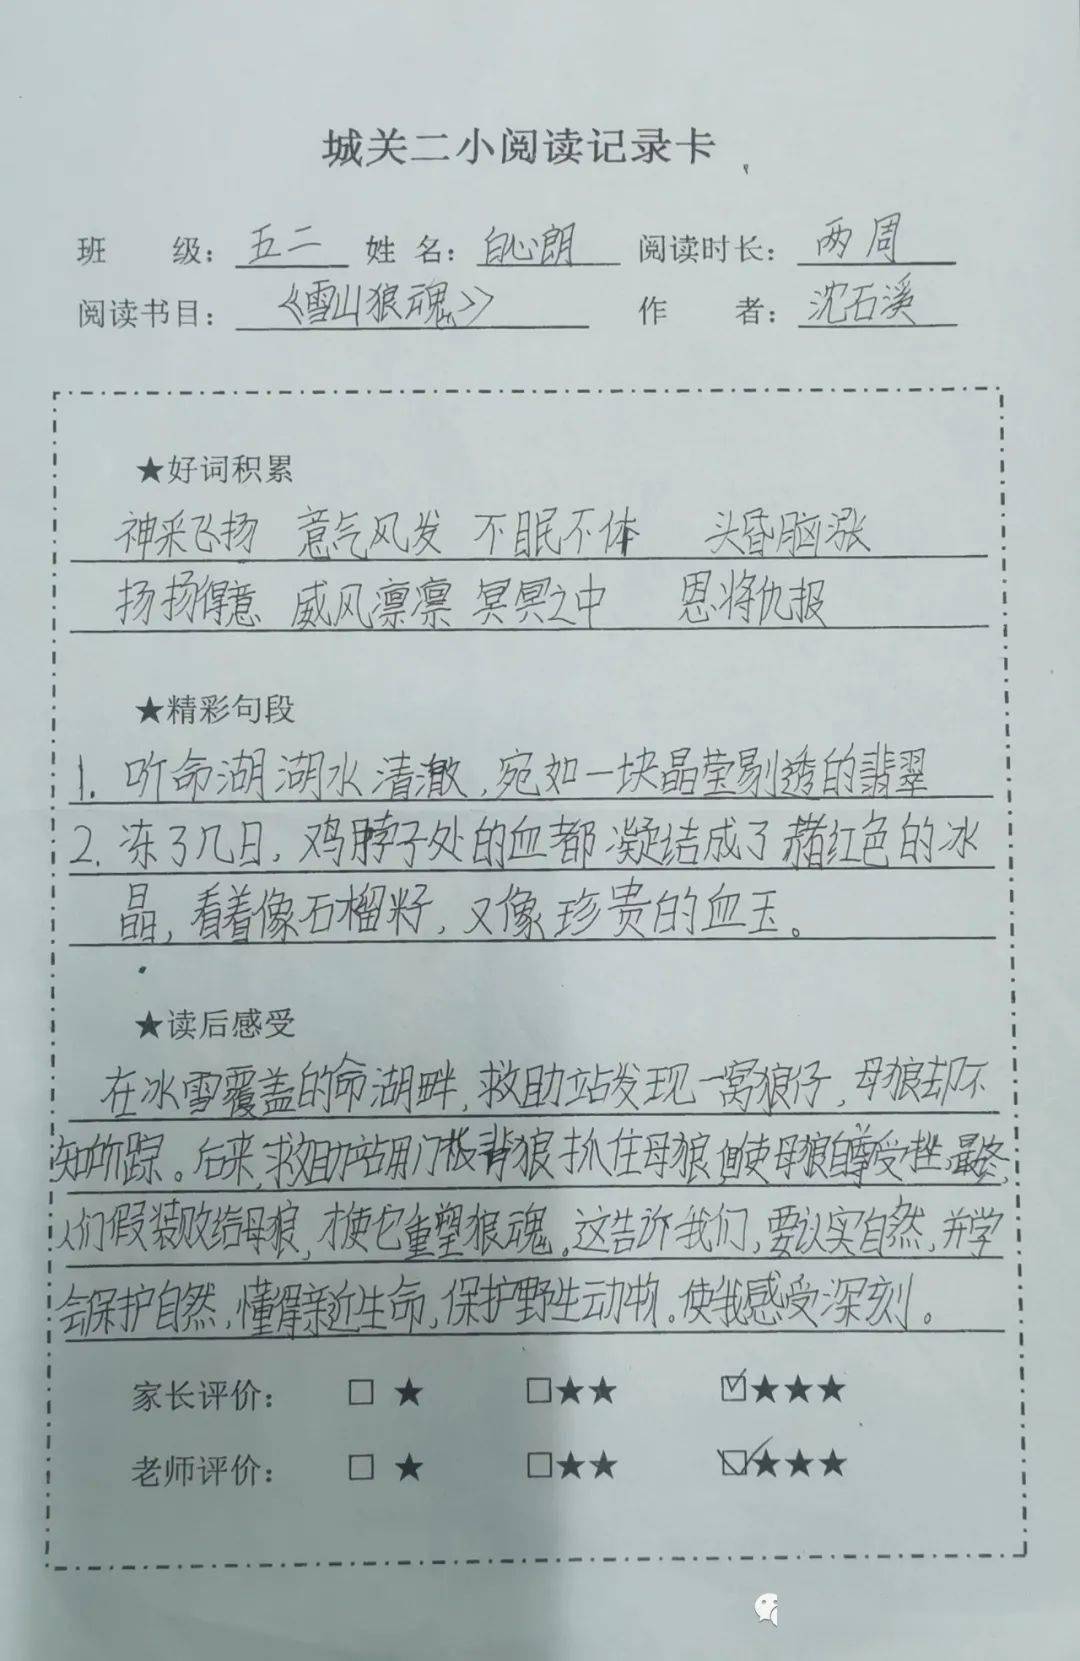 城关二小阅读记录卡
班 级: 五二 姓 名: 白心朗 阅读时长: 两周
阅读书目: 《雪山狼魂》 作 者: 沈石溪
★好词积累
神采飞扬 意气风发 不眠不体 头昏脑涨
扬扬得意 威风凛凛 冥冥之中 恩将仇报
★精彩句段
1. 听命湖湖水清澈,宛如一块晶莹剔透的翡翠
2. 冻了几日,鸡脖子处的血都凝结成了赭红色的冰
晶,看着像石榴籽,又像珍贵的血玉。
★读后感受
在冰雪覆盖的命湖畔,救助站发现一窝狼仔,母狼却不
知所踪。后来,救助站用门板背狼抓住母狼,使母狼自尊受挫,最终,
人们假装败给母狼,才使它重塑狼魂。这告诉我们,要认实自然,并学
会保护自然,懂得亲近生命,保护野生动物。使我感受深刻。
家长评价: □ ★ □★★ ☑★★★
老师评价: □ ★ □★★ ☑★★★